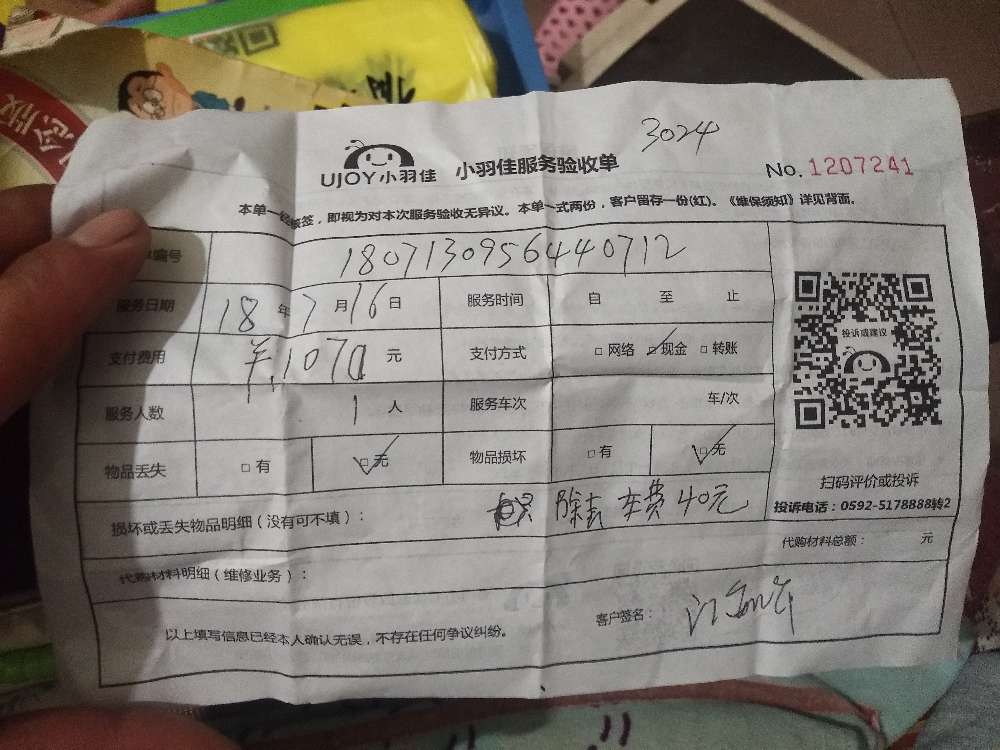 念版
3024
UJOY小羽佳 小羽佳服务验收单
No. 1207241
本单一经核签，即视为对本次服务验收无异议。本单一式两份，客户留存一份(红)。《维保须知》详见背面。
编号 1807130956440712
服务日期 18年7月16日 服务时间 自 至 止
支付费用 ¥1070元 支付方式 □网络 ☑现金 □转账
服务人数 1人 服务车次 车/次
物品丢失 □有 ☑无 物品损坏 □有 ☑无
投诉或建议
扫码评价或投诉
投诉电话：0592-5178888转2
损坏或丢失物品明细（没有可不填）： 除去车费40元
代购材料总额： 元
代购材料明细（维修业务）：
以上填写信息已经本人确认无误，不存在任何争议纠纷。
客户签名：